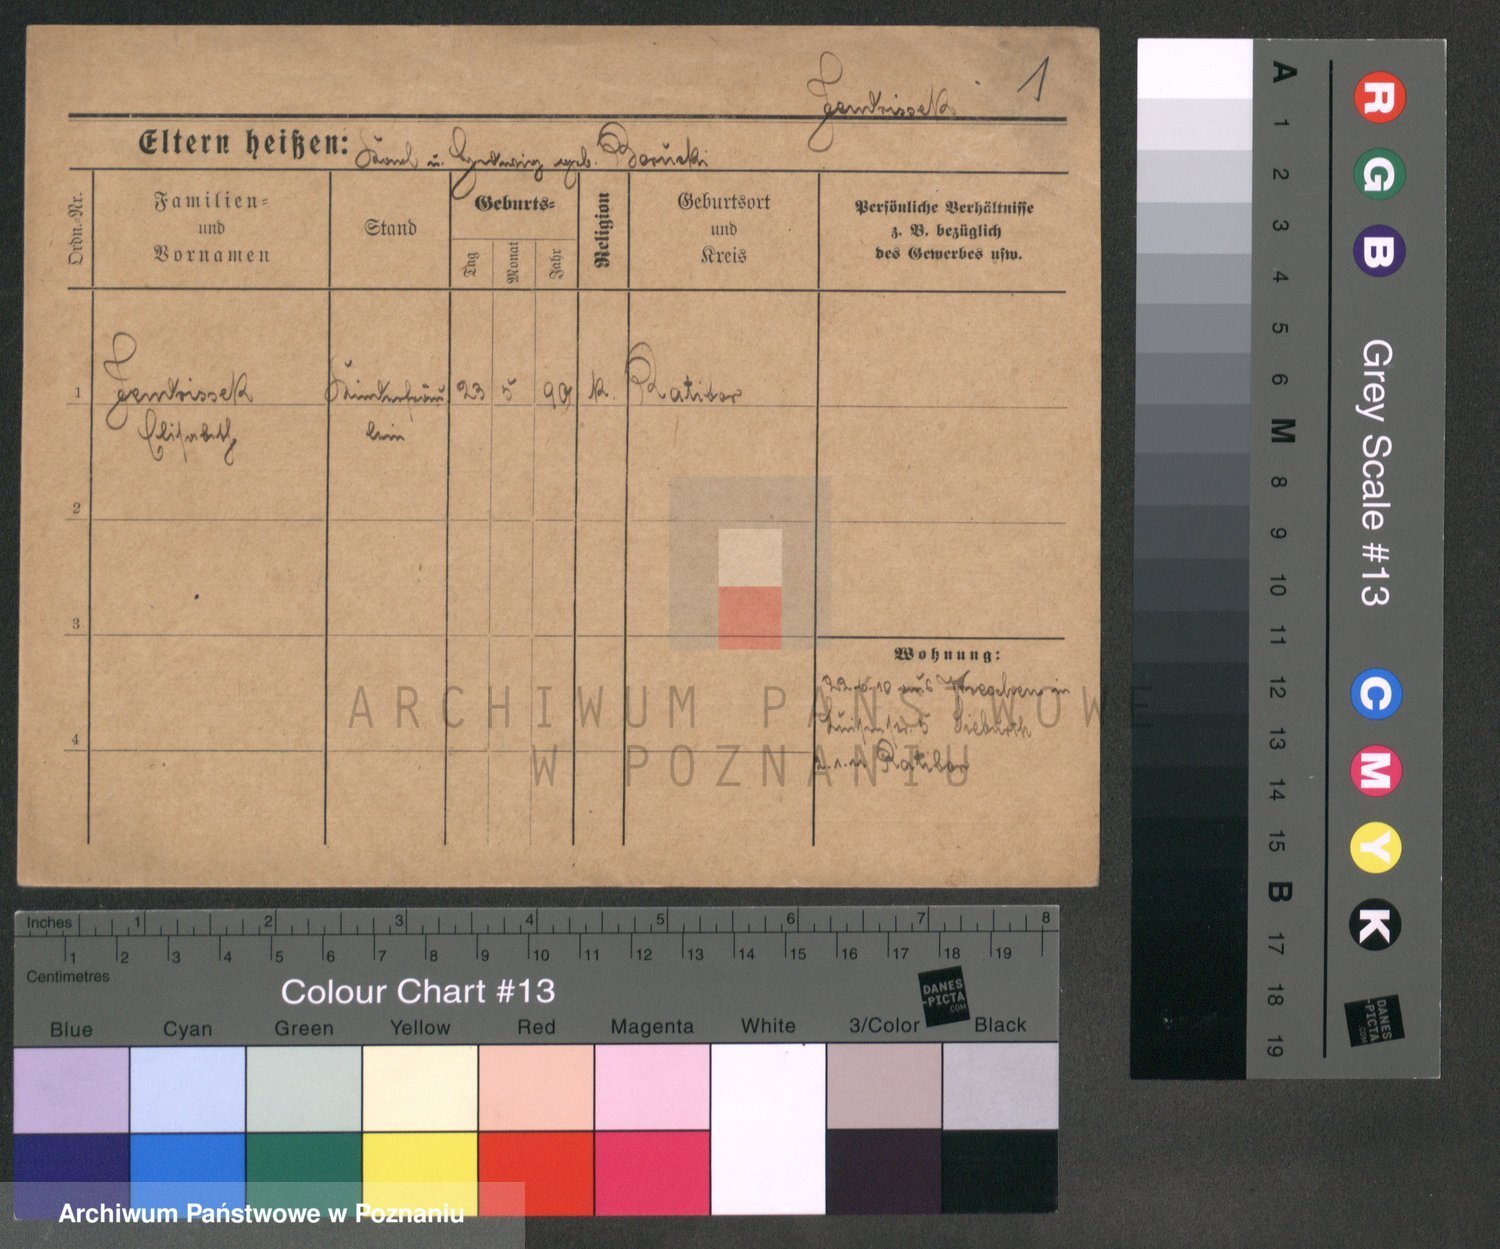 Jendrissek 1
Eltern heißen: Karl u. Hedwig geb. Borucki
Ordn.-Nr.
Familien-
und
Vornamen
Stand
Geburts-
Tag
Monat
Jahr
Religion
Geburtsort
und
Kreis
Persönliche Verhältnisse
z. B. bezüglich
des Gewerbes usw.
1 Jendrissek Kinderfräu 23 5 90 k. Ratibor
Elisabeth lein
2
3
4
Wohnung:
22.6.10 aus in
5
Ratibor
ARCHIWUM PAŃSTWOWE
W POZNANIU
Inches 1 2 3 4 5 6 7 8
1 2 3 4 5 6 7 8 9 10 11 12 13 14 15 16 17 18 19
Centimetres
Colour Chart #13
DANES
-PICTA
.COM
Blue Cyan Green Yellow Red Magenta White 3/Color Black
Archiwum Państwowe w Poznaniu
A 1 2 3 4 5 6 M 8 9 10 11 12 13 14 15 B 17 18 19
R G B Grey Scale #13 C M Y K
DANES
-PICTA
.COM